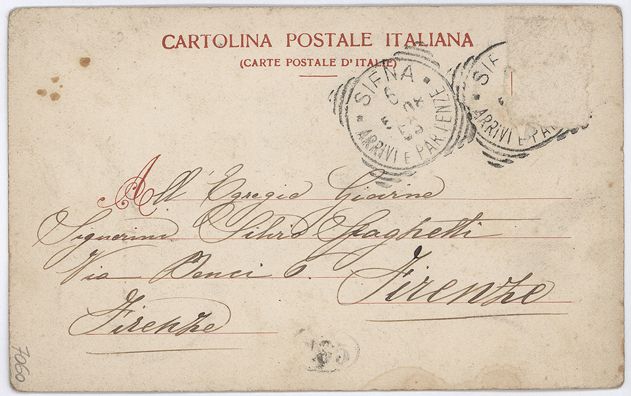 CARTOLINA POSTALE ITALIANA
(CARTE POSTALE D'ITALIE)
SIENA
ARRIVI E PARTENZE
SIE
ARRIVI E PA
All' Egregio Giovine
Signorino Silvio Spaghetti
Via Benci 6.
Firenze
Firenze
7060